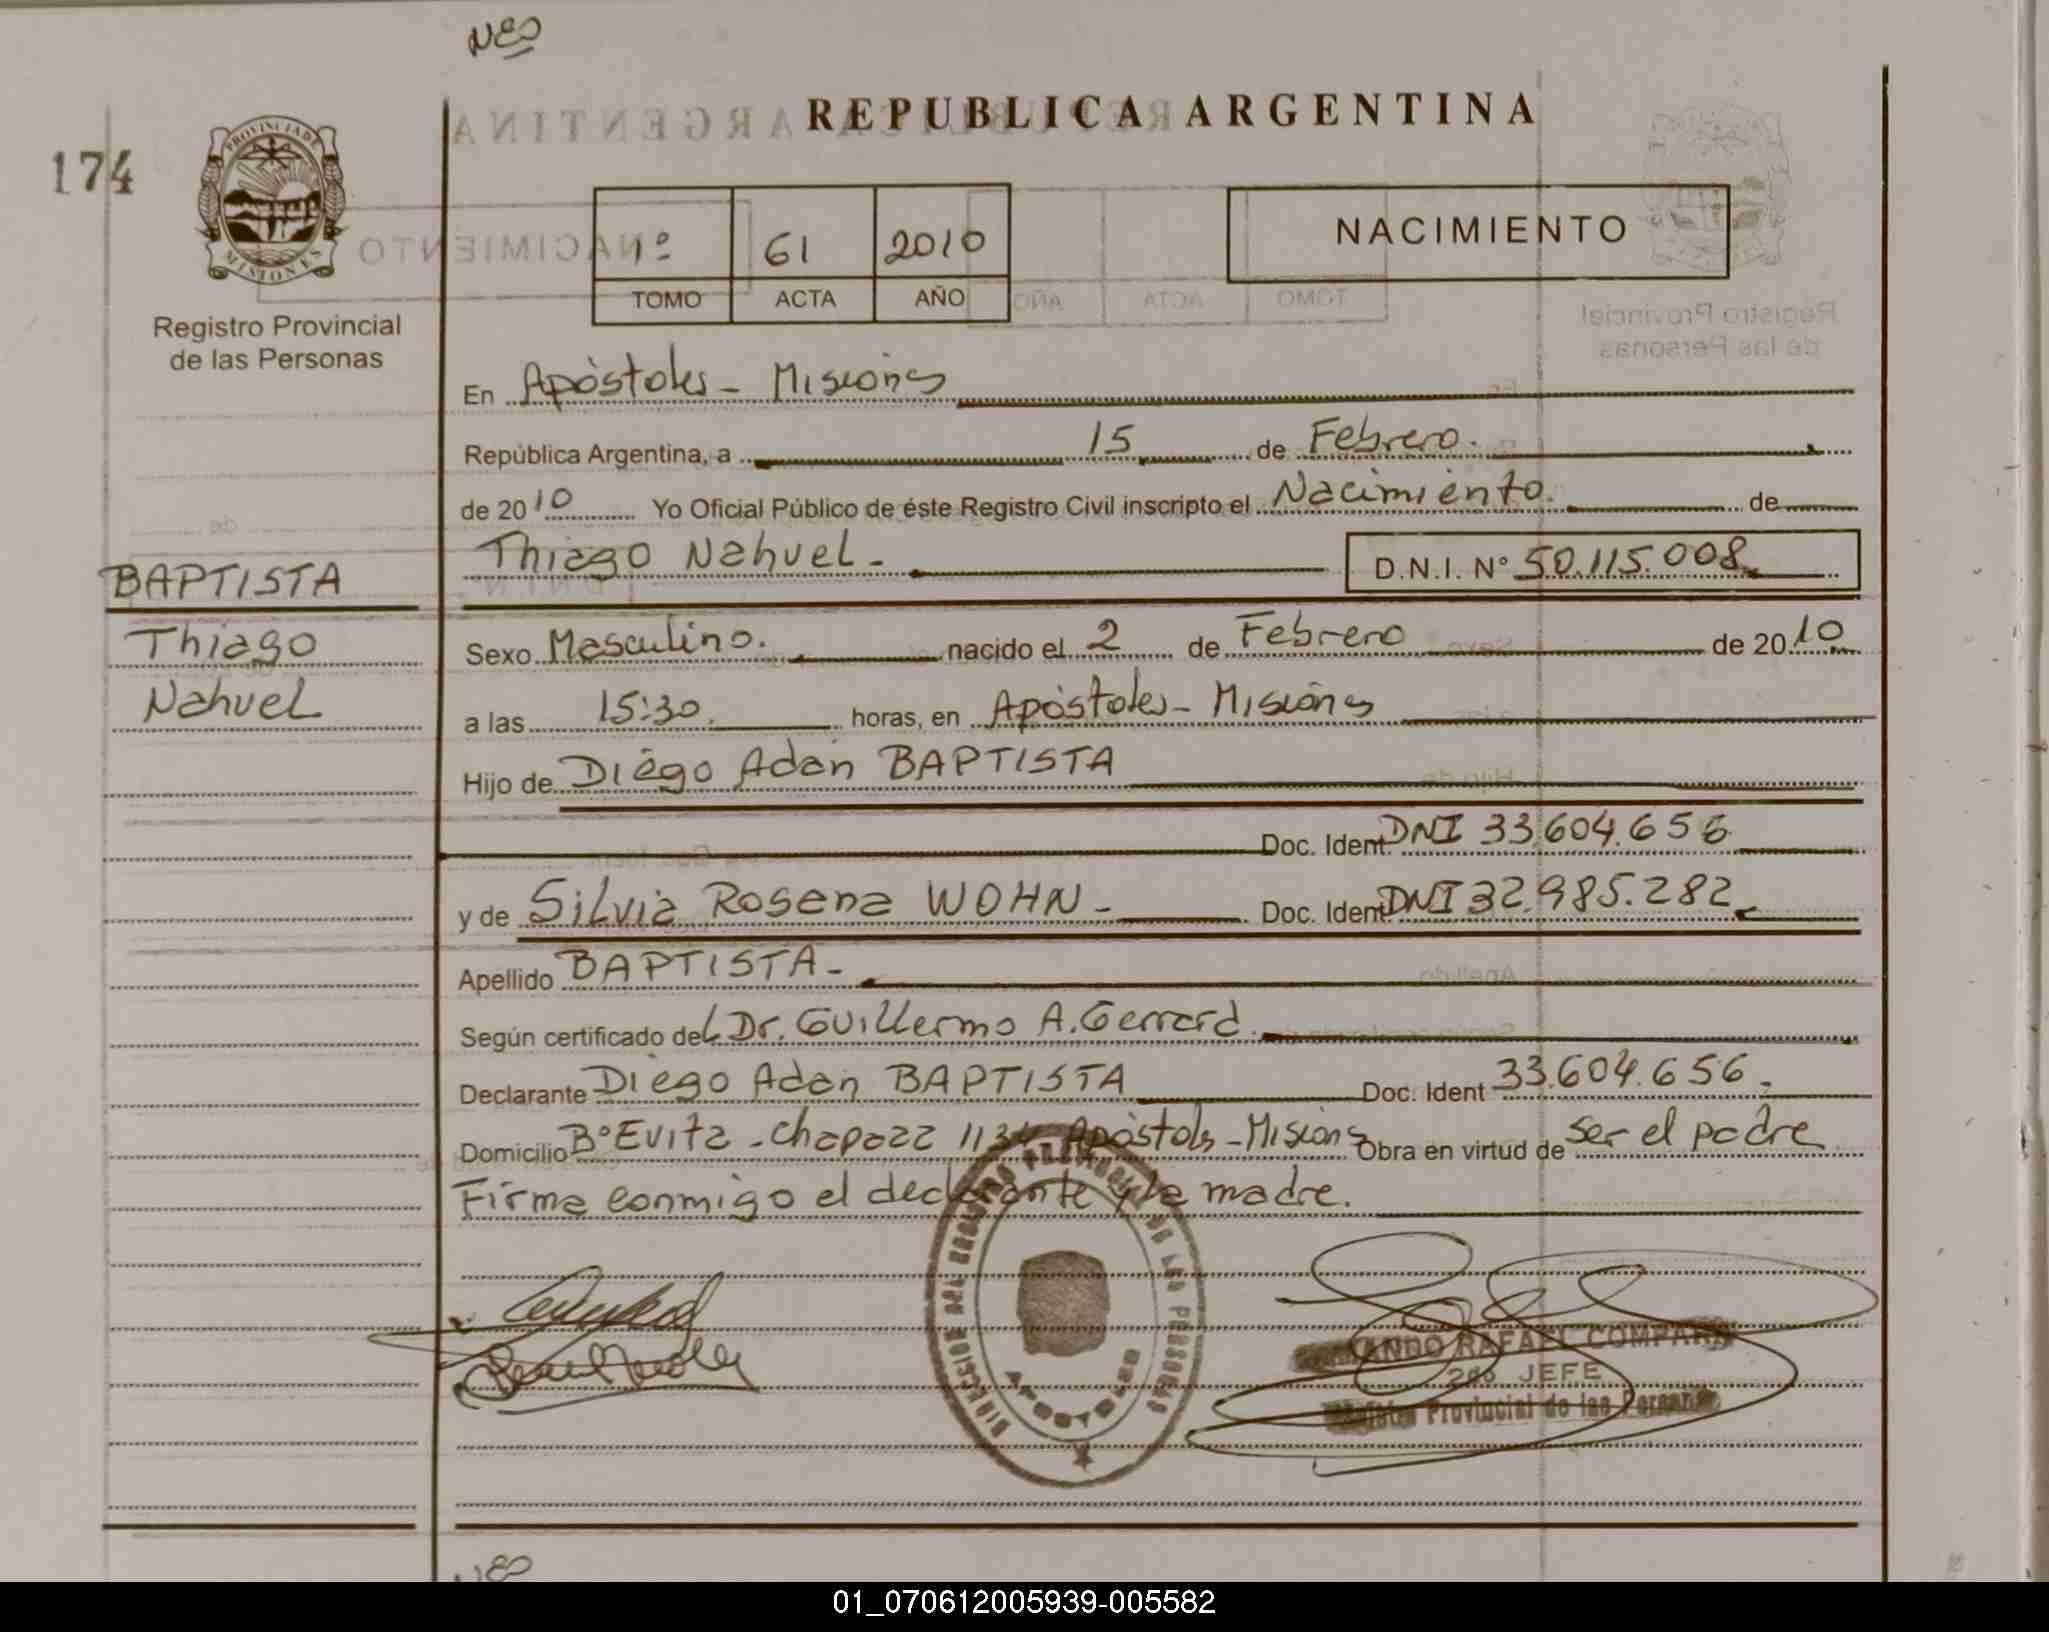 NES
174
REPUBLICA ARGENTINA
PROVINCIA DE
MISIONES
Registro Provincial
de las Personas
1º 61 2010
TOMO ACTA AÑO
NACIMIENTO
En Apòstoles - Misiones
República Argentina, a 15 de Febrero.
de 2010 Yo Oficial Público de éste Registro Civil inscripto el Nacimiento. de
Thiago Nahuel - D.N.I. N° 50.115.008
BAPTISTA
Thiago
Nahuel
Sexo Masculino. nacido el 2 de Febrero de 2010
a las 15:30. horas, en Apòstoles - Misiones
Hijo de Diego Adán BAPTISTA
Doc. Ident DNI 33.604.656
y de Silvia Rosana WOHN - Doc. Ident DNI 32.985.282
Apellido BAPTISTA -
Según certificado del Dr. Guillermo A. Gerrard.
Declarante Diego Adán BAPTISTA Doc. Ident 33.604.656.
Domicilio B° Evita - Chapazz 1134 Apòstoles - Misiones Obra en virtud de ser el padre
Firma conmigo el declarante y la madre.
DIRECCION DEL REGISTRO PROVINCIAL DE LAS PERSONAS
APOSTOLES
RAFAEL COMPARA
2do JEFE
Registro Provincial de las Personas
01_070612005939-005582